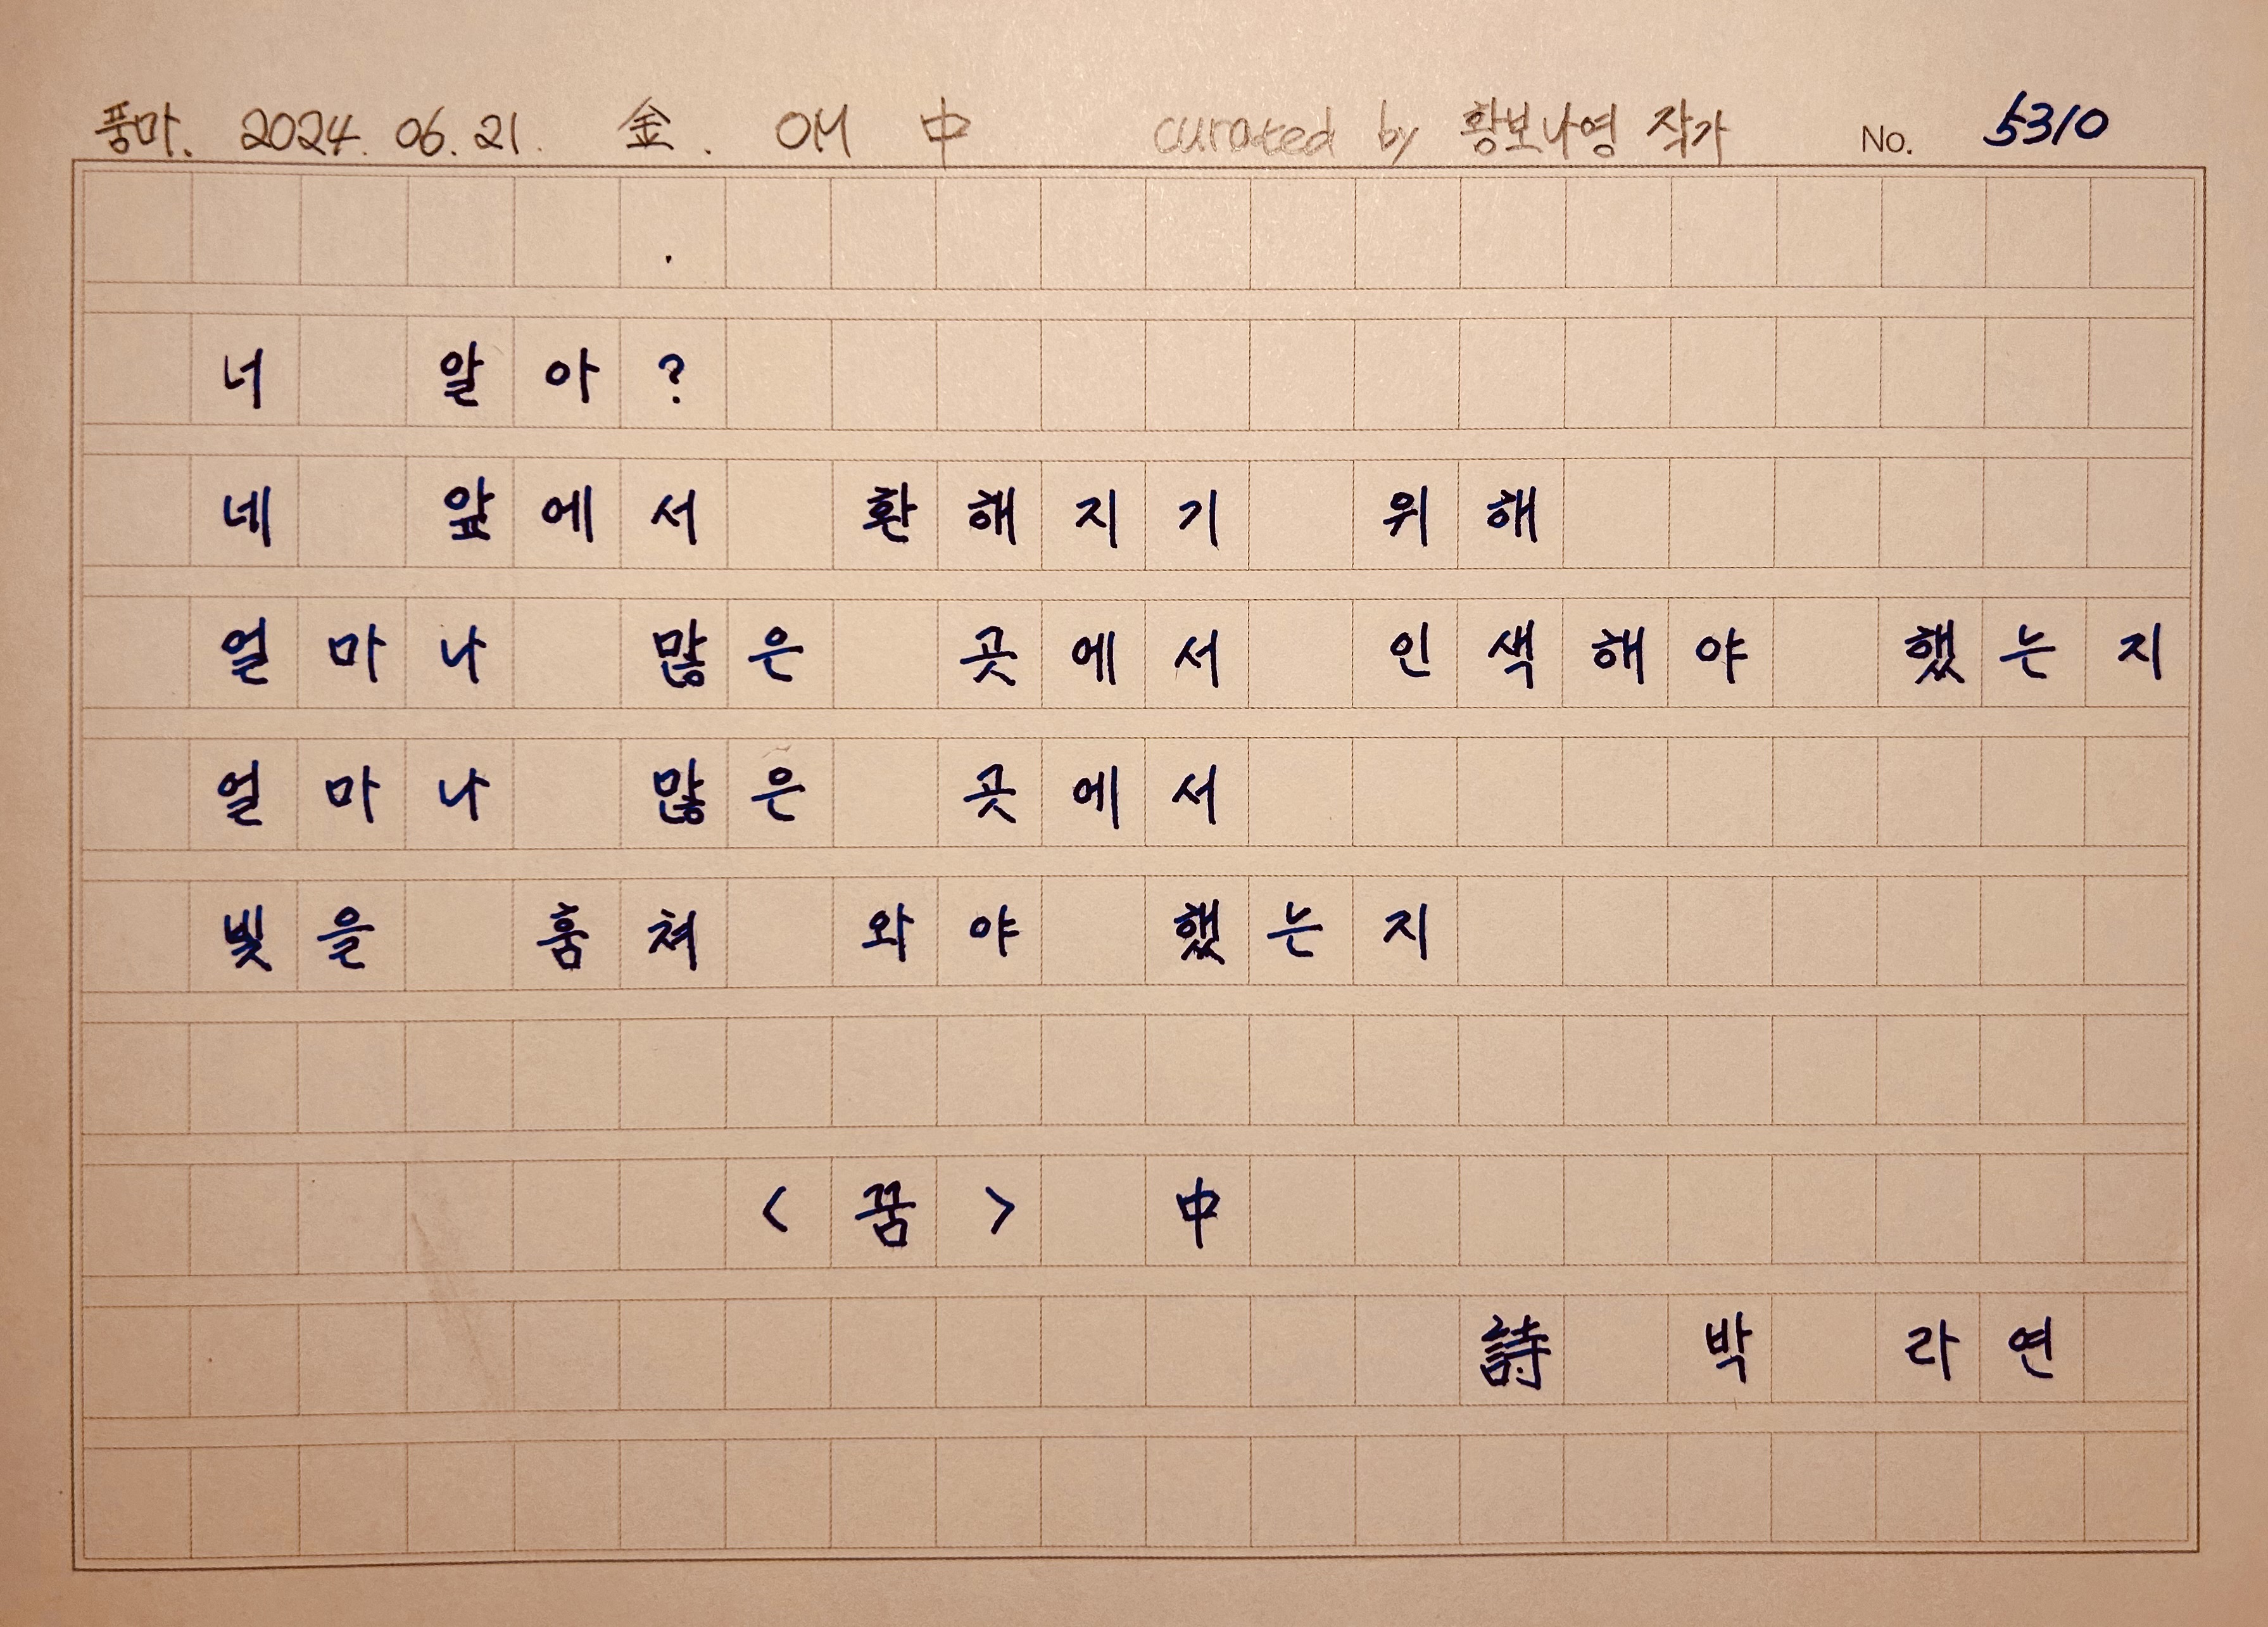 풍마. 2024. 06. 21. 金. OM 中 curated by 황보나영 작가 No. 5310
너 알아?
네 앞에서 환해지기 위해
얼마나 많은 곳에서 인색해야 했는지
얼마나 많은 곳에서
빛을 훔쳐 와야 했는지
<꿈> 中
詩 박 라연